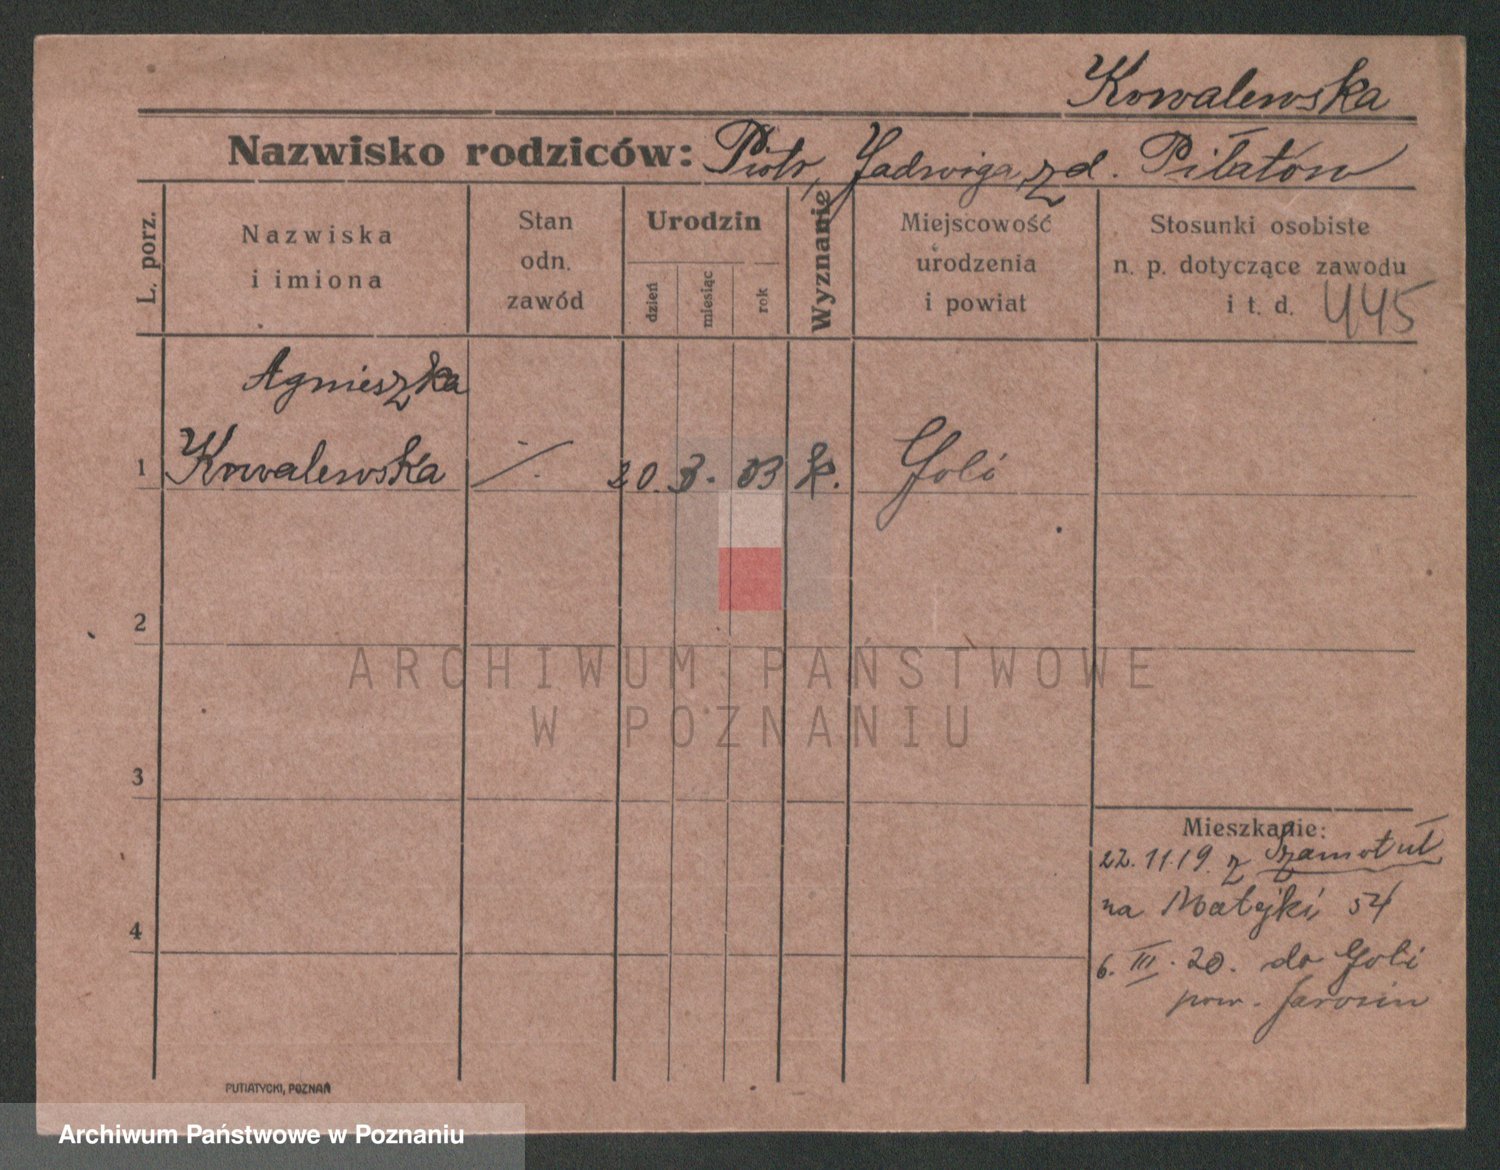 Kowalewska
Nazwisko rodziców: Piotr, Jadwiga, z d. Piłatów
L. porz.
Nazwiska
i imiona
Stan
odn.
zawód
Urodzin
dzień
miesiąc
rok
Wyznanie
Miejscowość
urodzenia
i powiat
Stosunki osobiste
n. p. dotyczące zawodu
i t. d. 445
Agnieszka
1 Kowalewska ./. 20. 3. 03 k. Goli
2
ARCHIWUM PAŃSTWOWE
W POZNANIU
3
Mieszkanie:
22. 11. 19. z Szamotuł
na Matejki 54
4
6. III. 20. do Goli
pow. Jarocin
PUTIATYCKI, POZNAŃ
Archiwum Państwowe w Poznaniu